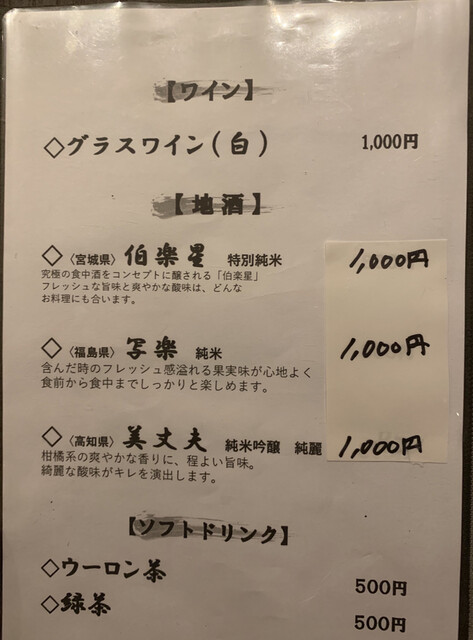 【ワイン】
◇グラスワイン(白) 1,000円
【地酒】
◇〈宮城県〉伯楽星 特別純米 1,000円
究極の食中酒をコンセプトに醸される「伯楽星」
フレッシュな旨味と爽やかな酸味は、どんな
お料理にも合います。
◇〈福島県〉写楽 純米 1,000円
含んだ時のフレッシュ感溢れる果実味が心地よく
食前から食中までしっかりと楽しめます。
◇〈高知県〉美丈夫 純米吟醸 純麗 1,000円
柑橘系の爽やかな香りに、程よい旨味。
綺麗な酸味がキレを演出します。
【ソフトドリンク】
◇ウーロン茶 500円
◇緑茶 500円